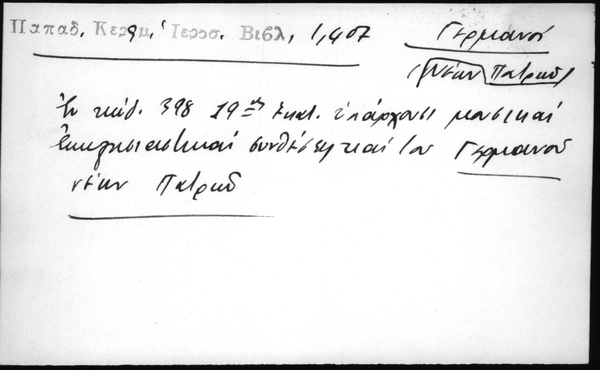 Παπαδ. Κεραμ. Ἱεροσ. Βιβλ, 1,407
Γερμανός
(Νέων Πατρῶν)
Ἐν κώδ. 398 19ης ἑκατ. ὑπάρχουσι μουσικαί
ἐκκλησιαστικαί συνθέσεις καί τοῦ Γερμανοῦ
νέων Πατρῶν